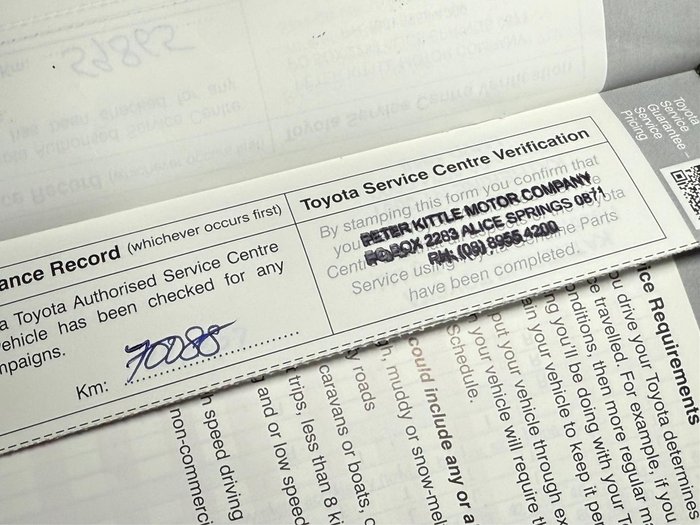 Toyota
Service
Guarantee
Service
Pricing
ance Record (whichever occurs first)
a Toyota Authorised Service Centre
ehicle has been checked for any
mpaigns.
Km: 70088
Toyota Service Centre Verification
By stamping this form you confirm that
you
Cent
Service using Parts
have been completed.
PETER KITTLE MOTOR COMPANY
PO BOX 2263 ALICE SPRINGS 0871
PH: (08) 8955 4200
ice Requirements
u drive your Toyota determines
e travelled. For example, if you
onditions, then more regular m
ng you'll be doing with your T
ain your vehicle to keep it pe
put your vehicle through ex
your vehicle will require t
Schedule.
could include any or a
h, muddy or snow-mel
y roads
caravans or boats, c
trips, less than 8 ki
g and or low speed
h speed driving
non-commerci